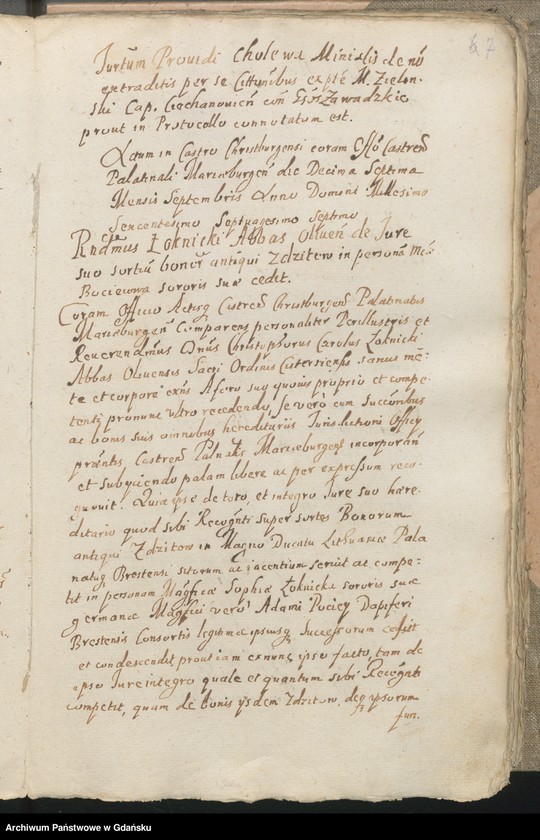 7
Jurtum Providi Cholewa Ministis de nō
extraditis per se Cittōnibus ex pte M. Zielon-
ski Cap. Ciechanovien̄ con̄ Zawadzkie
prout in Protocollo connotatum est.
Actum in Castro Christburgensi coram Offō Castren̄
Palatinali Marieburgen̄ die Decima Septima
Mensis Septembris Anno Domini Millesimo
Sexcentesimo Septuagesimo Septimo
Rndmus Łoknicki Abbas Oliven̄ de Jure
suo sortiū bonor̄ antiqui Zdzitow in personā
Pociejowa sororis suæ cedit.
Coram Officio Actisq Castren̄ Christburgen̄ Palatinatus
Marieburgen̄ Comparens personaliter Perillustris et
Reverendmus Dnus Christophorus Carolus Łoknicki
Abbas Olivensis Sacri Ordinis Cistersiensis sanus mē-
te et corpore exns A foro suo quovis proprio et compe-
tenti pronunc ultro recedendo, se vero cum Succōribus
ac bonis suis omnibus hæreditariis Jurisdictioni Officÿ
prāntis, Castren̄ Palnalis Marieburgen̄ incorporān
et subÿciendo palam libere ac per expressum reco-
gnovit. Quia ipse de toto, et integro Jure suo hære-
ditario quod sibi Recognti super sortes Bonorum
antiqui Zdzitow in Magno Ducatu Lithuaniæ Pala
natuq Brestensi sitorum ac jacentium servit ac compe-
tit in personam Magficæ Sophiæ Łoknicki sororis suæ
germanæ Magfici vero Adami Pociey Dapiferi
Brestensis Consortis legitimæ ipsiusq Successorum cessit
et condescendit prout iam exnunc ipso facto, tam de
ipso Jure integro quale et quantum sibi Recognti
competit, quam de bonis ÿsdem Zdzitow, deq ipsorum
fun.
Archiwum Państwowe w Gdańsku